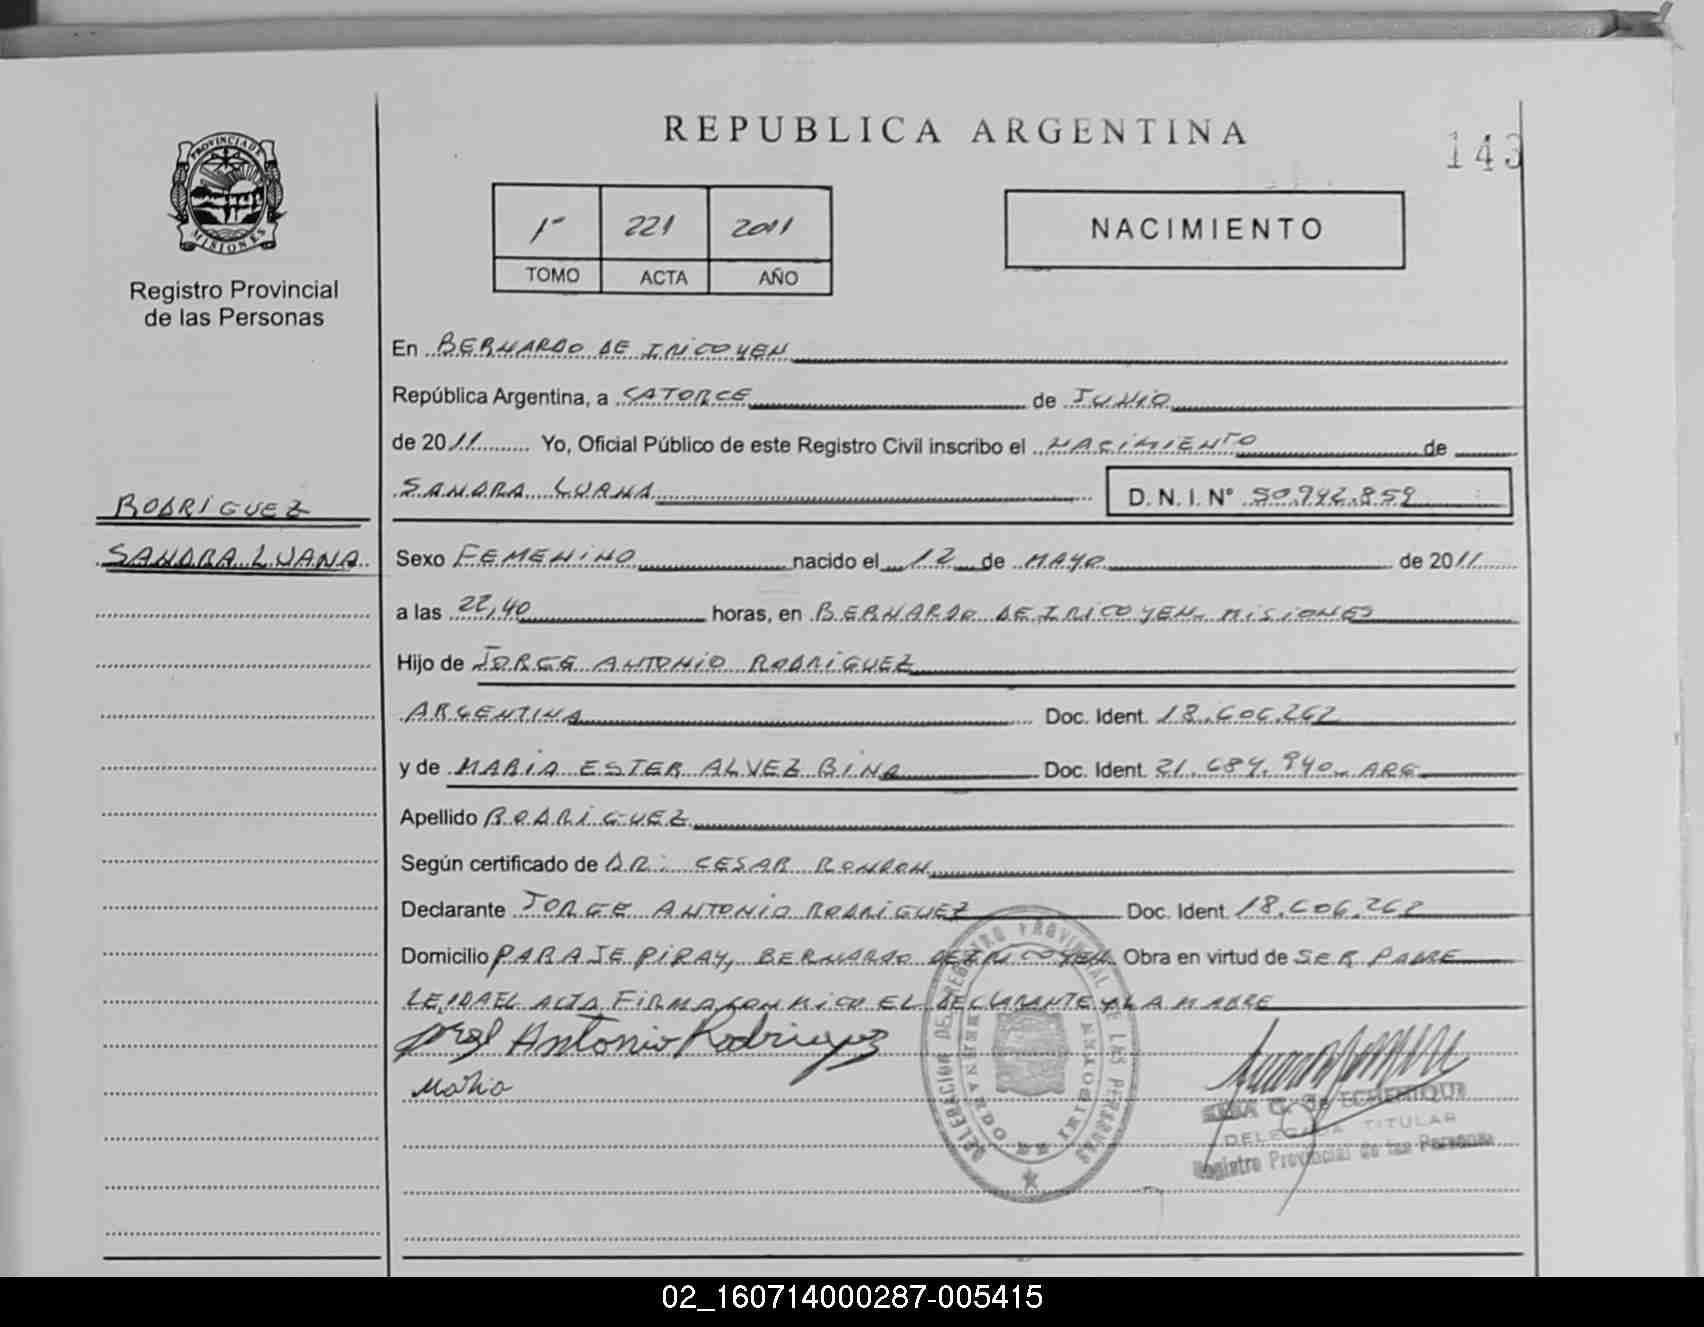 REPUBLICA ARGENTINA
143
PROVINCIA DE
MISIONES
Registro Provincial
de las Personas
1º 221 2011
TOMO ACTA AÑO
NACIMIENTO
En BERNARDO DE IRIGOYEN
República Argentina, a CATORCE de JUNIO
de 2011 Yo, Oficial Público de este Registro Civil inscribo el NACIMIENTO de
SANDRA LUANA D. N. I. Nº 50.942.859
RODRIGUEZ
SANDRA LUANA
Sexo FEMENINO nacido el 12 de MAYO de 2011
a las 22,40 horas, en BERNARDO DE IRIGOYEN. MISIONES
Hijo de JORGE ANTONIO RODRIGUEZ
ARGENTINA Doc. Ident. 18.606.262
y de MARIA ESTER ALVEZ BINA Doc. Ident. 21.684.940. ARG
Apellido RODRIGUEZ
Según certificado de DR. CESAR RONDON
Declarante JORGE ANTONIO RODRIGUEZ Doc. Ident. 18.606.262
Domicilio PARAJE PIRAY, BERNARDO DE IRIGOYEN. Obra en virtud de SER PADRE
LEIDA EL ACTA FIRMA CONMIGO EL DECLARANTE Y LA MADRE
Antonio Rodriguez
Maria
DELEGACION DEL REGISTRO PROVINCIAL DE LAS PERSONAS
BERNARDO DE IRIGOYEN
G. de ECHERIQUE
DELEGADA TITULAR
Registro Provincial de las Personas
02_160714000287-005415